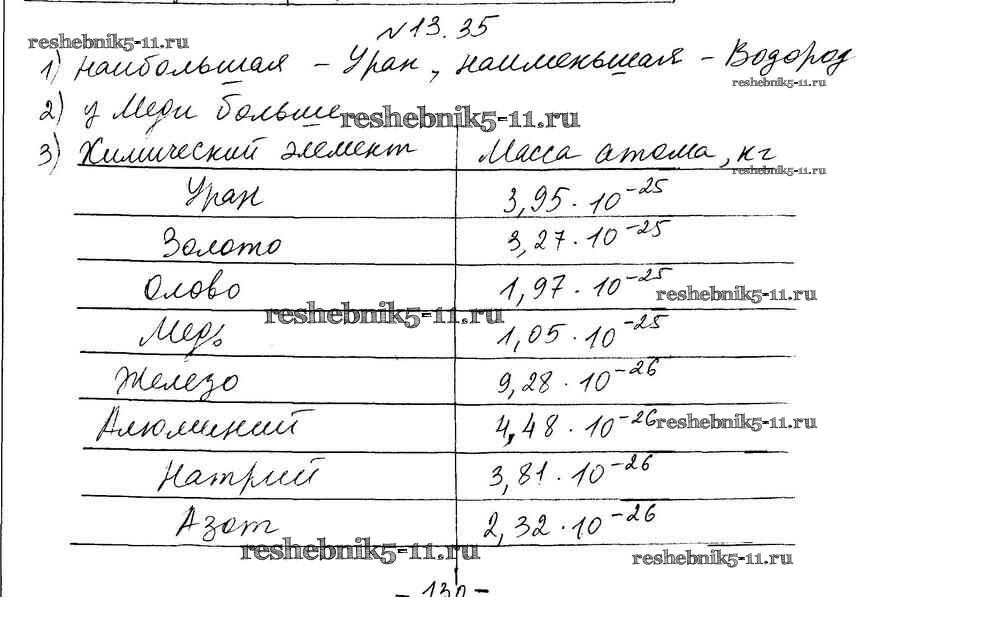 №13.35
reshebnik5-11.ru
1) наибольшая – Уран, наименьшая – Водород
reshebnik5-11.ru
2) у Меди больше
reshebnik5-11.ru
3) Химический элемент Масса атома, кг
reshebnik5-11.ru
Уран 3,95·10⁻²⁵
Золото 3,27·10⁻²⁵
Олово 1,97·10⁻²⁵
reshebnik5-11.ru
reshebnik5-11.ru
Медь 1,05·10⁻²⁵
Железо 9,28·10⁻²⁶
Алюминий 4,48·10⁻²⁶
reshebnik5-11.ru
Натрий 3,81·10⁻²⁶
Азот 2,32·10⁻²⁶
reshebnik5-11.ru
reshebnik5-11.ru
– 130 –